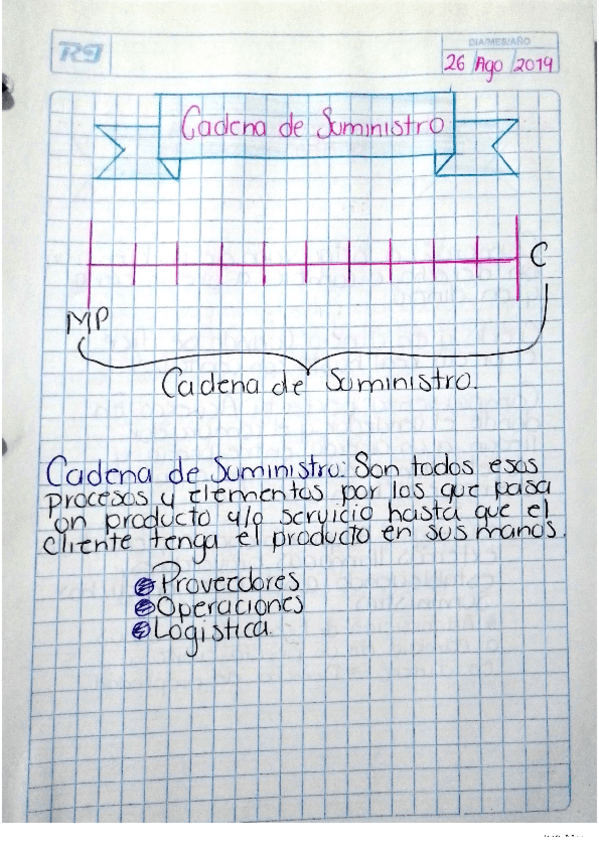 R9
DIA/MES/AÑO
26 /Ago /2019
Cadena de Suministro
C
MP
Cadena de Suministro.
Cadena de Suministro: Son todos esos
procesos y elementos por los que pasa
un producto y/o servicio hasta que el
cliente tenga el producto en sus manos.
Proveedores
Operaciones
Logistica.